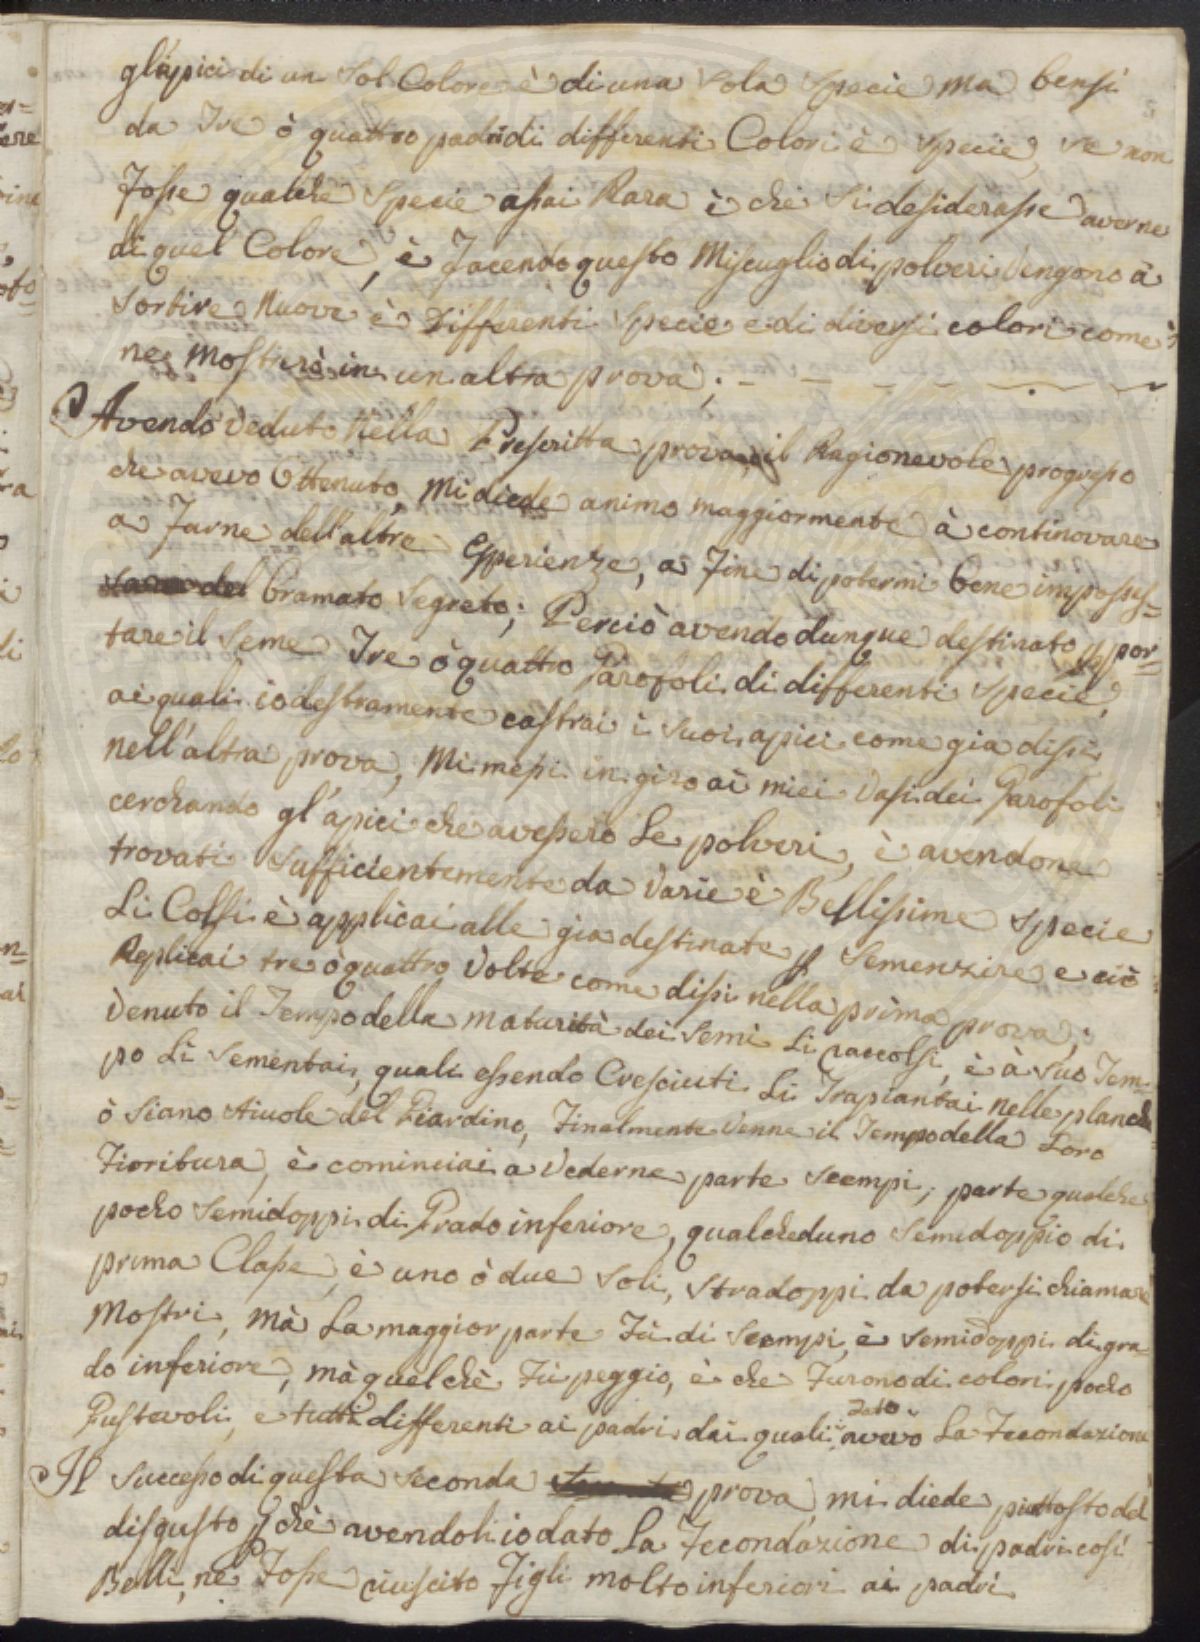 gl'apici di un Sol Colore è di una Sola Specie ma bensi
da Tre ò quattro padri di differenti Colori è Specie, se non
fosse qualche Specie assai Rara è che Si desiderasse averne
di quel Colore, è facendo questo Miscuglio di polveri Vengono à
Sortire Nuove è Differenti Specie e di diversi colori come
ne Mostrerò in un altra prova;
Avendo Veduto Nella Prescritta prova, il Ragionevole progresso
che avevo Ottenuto, Mi diede animo maggiormente à continovare
a Farne dell'altre Esperienze, a Fine di potermi bene imposses=
bramato Segreto; Perciò avendo dunque destinato p por=
tare il Seme Tre ò quattro Garofoli di differenti Specie,
ai quali io destramente castrai i Suoi apici come gia dissi
nell'altra prova, Mi messi in giro ai miei Vasi dei Garofoli
cerchando gl'apici che avessero Le polveri, è avendone
trovati Sufficientemente da Varie è Bellissime Specie
Li Colsi è applicai alle gia destinate p Semenzire e ciò
Replicai tre ò quattro Volte come dissi nella prima prova;
Venuto il Tempo della maturità dei Semi Li raccolsi, è à Suo Tem=
po Li Sementai, quali essendo Cresciuti Li Trapiantai nelle planche
ò Siano Aiuole del Giardino, Finalmente Venne il Tempo della Loro
Fioritura, è cominciai a Vederne parte Scempi, parte qualche
pocho Semidoppi di Grado inferiore, qualcheduno Semidoppio di
prima Classe, è uno ò due Soli, Stradoppi da potersi chiamare
Mostri, Mà La maggior parte Fù di Scempi, è Semidoppi di gra=
do inferiore, mà quèl chè Fù peggio, è che Furono di colori pocho
Gustevoli, e tutti differenti ai padri dai quali avevo dato La Fecondazione
Il Successo di questa Seconda prova, mi diede piuttosto del
disgusto p chè avendoli io dato La Fecondazione di padri così
Belli, ne Fosse riuscito Figli molto inferiori ai padri